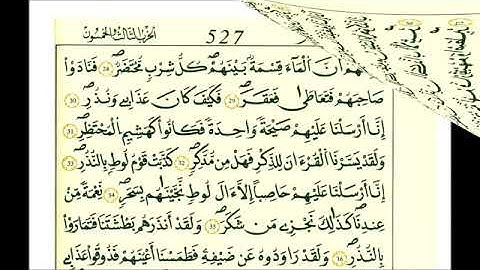 527 الحزب الثالث والخمسون
أَنَّ ٱلْمَآءَ قِسْمَةٌۢ بَيْنَهُمْ كُلُّ شِرْبٍ مُّحْتَضَرٌ 28 فَنَادَوْا
صَاحِبَهُمْ فَتَعَاطَىٰ فَعَقَرَ 29 فَكَيْفَ كَانَ عَذَابِي وَنُذُرِ 30
إِنَّا أَرْسَلْنَا عَلَيْهِمْ صَيْحَةً وَٰحِدَةً فَكَانُوا كَهَشِيمِ ٱلْمُحْتَظِرِ 31
وَلَقَدْ يَسَّرْنَا ٱلْقُرْءَانَ لِلذِّكْرِ فَهَلْ مِن مُّدَّكِرٍ 32 كَذَّبَتْ قَوْمُ لُوطٍۭ بِالنُّذُرِ 33
إِنَّا أَرْسَلْنَا عَلَيْهِمْ حَاصِبًا إِلَّا ءَالَ لُوطٍ نَّجَّيْنَٰهُم بِسَحَرٍ 34 نِّعْمَةً مِّنْ
عِندِنَا كَذَٰلِكَ نَجْزِي مَن شَكَرَ 35 وَلَقَدْ أَنذَرَهُم بَطْشَتَنَا فَتَمَارَوْا
بِالنُّذُرِ 36 وَلَقَدْ رَٰوَدُوهُ عَن ضَيْفِهِ فَطَمَسْنَا أَعْيُنَهُمْ فَذُوقُوا عَذَابِي